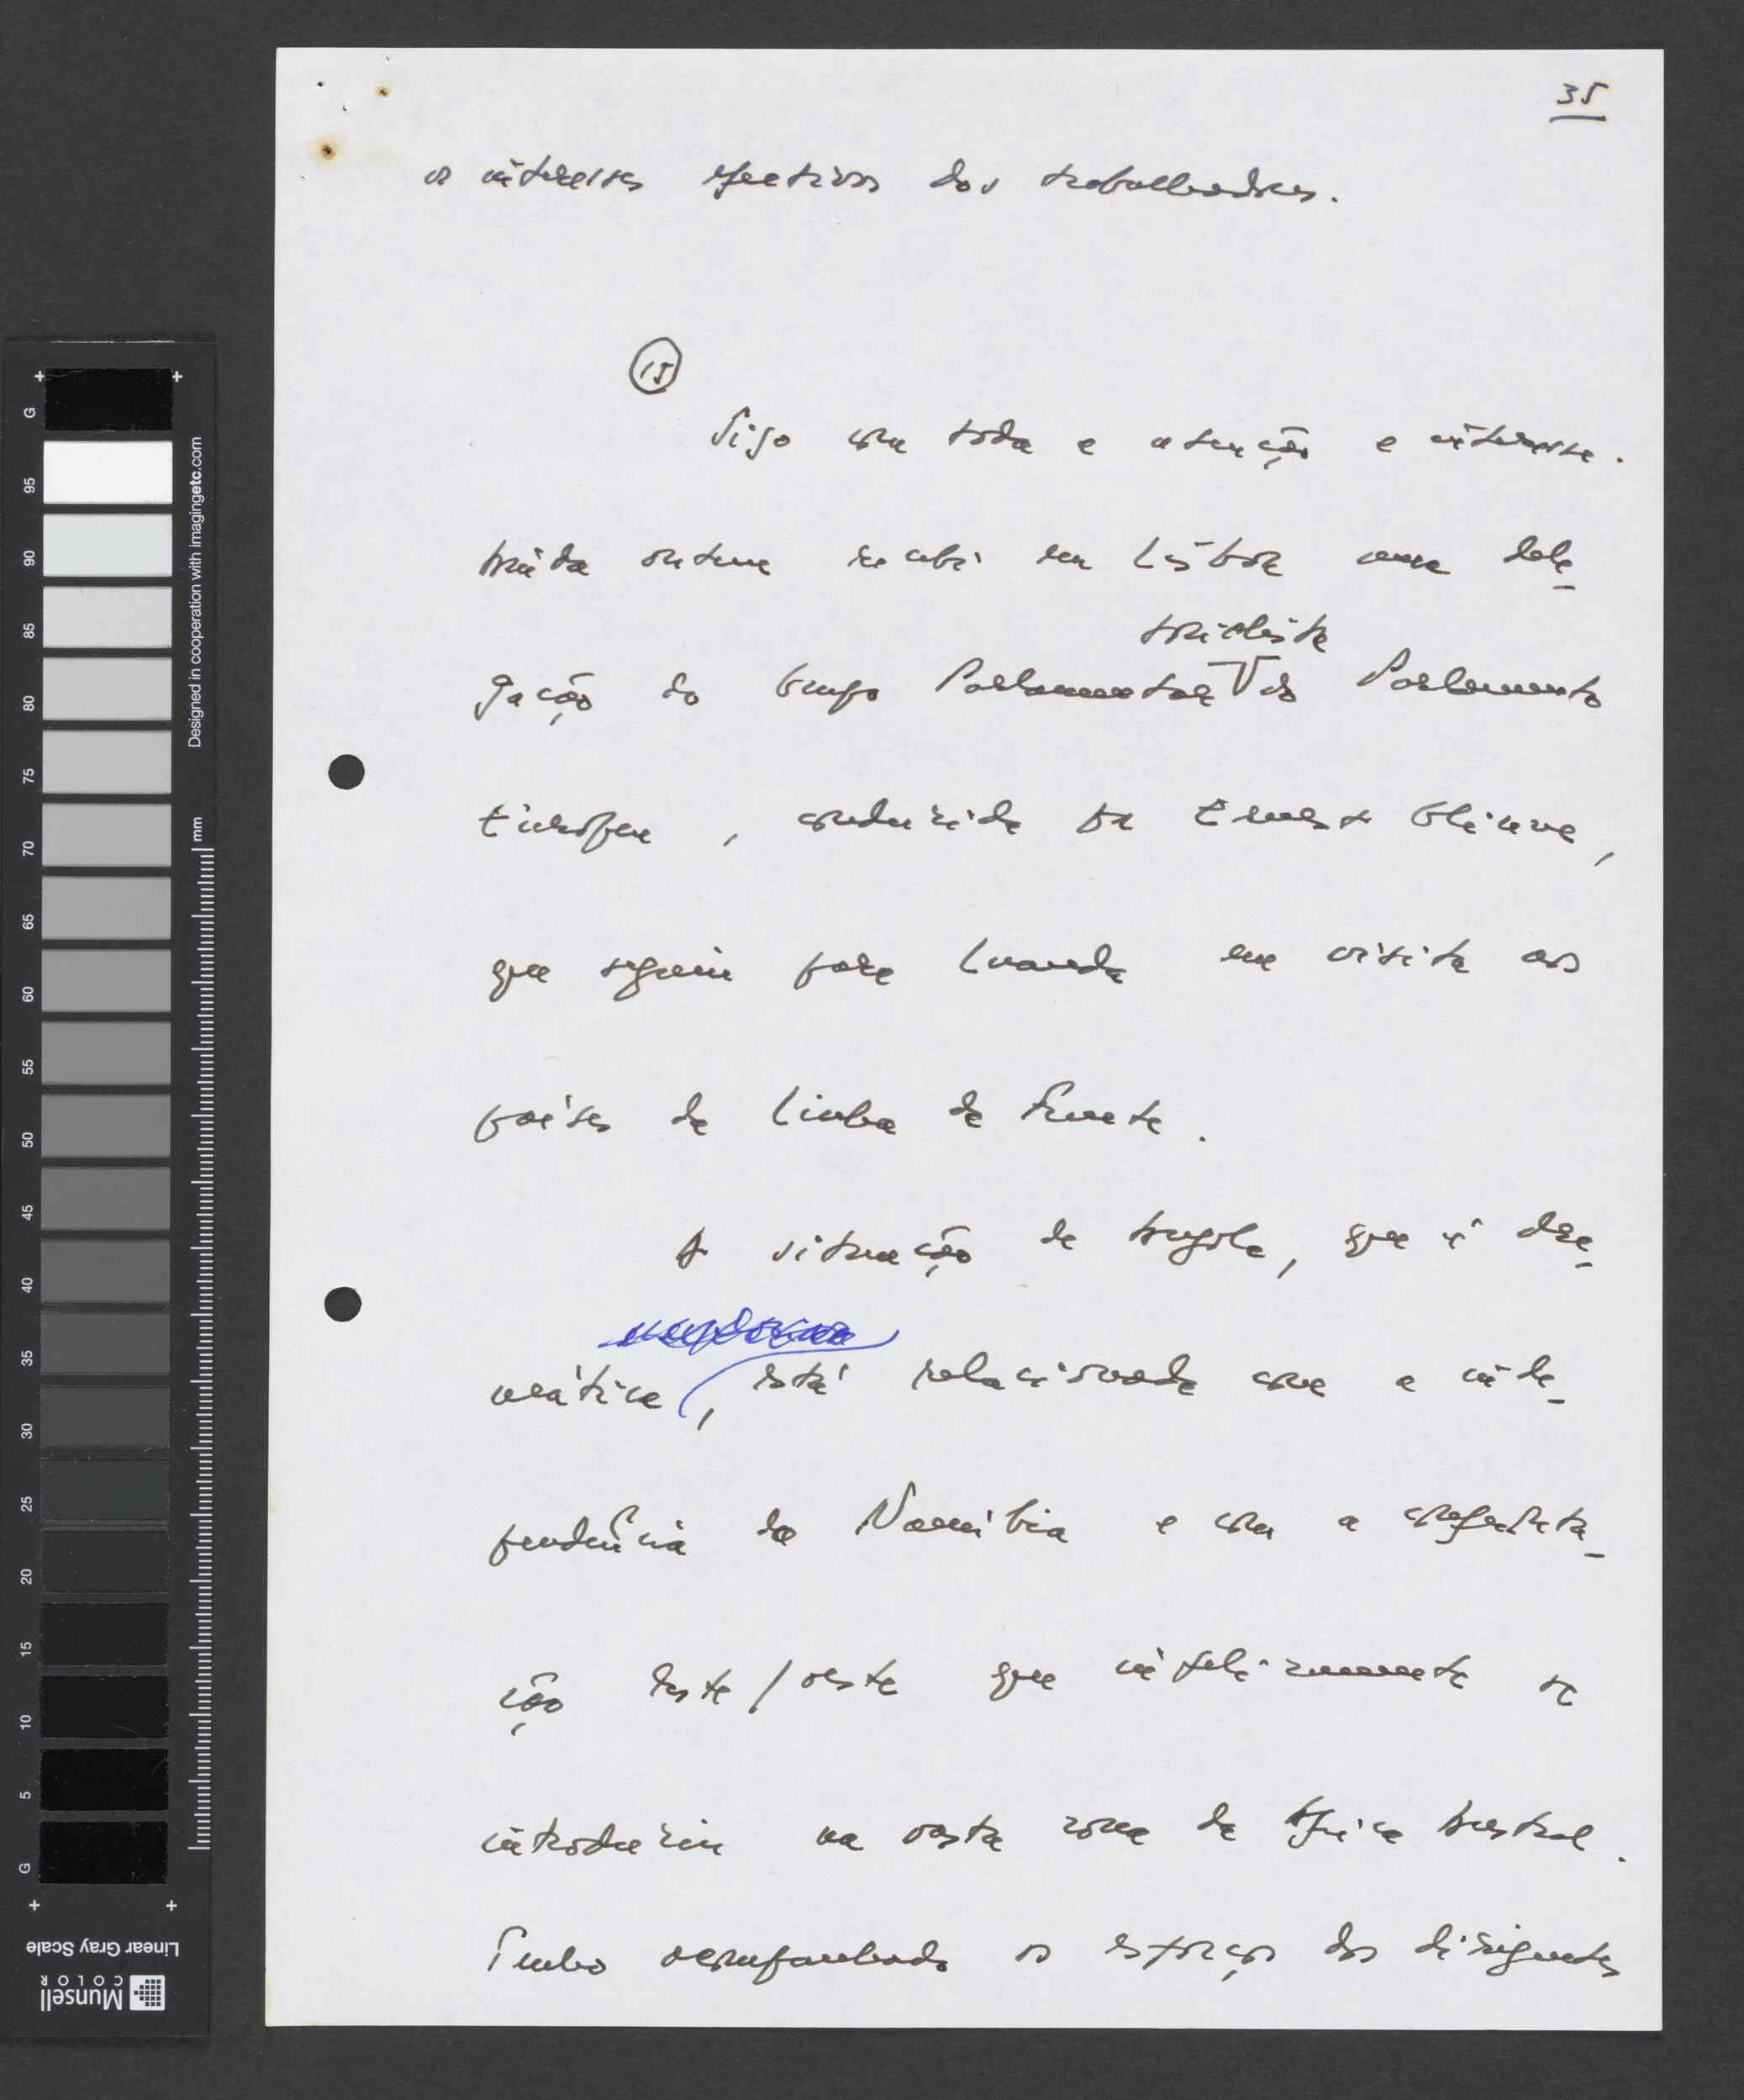 35
os interesses efectivos dos trabalhadores.
15
Sigo com toda a atenção e interesse.
Ainda ontem recebi em Lisboa uma dele-
socialista
gação do Grupo Parlamentar do Parlamento
Europeu, conduzida por Ernest Glinne,
que seguiu para Luanda em visita aos
países da Linha da Frente.
A situação de Angola, que é dra-
mática, está relacionada com a inde-
pendência da Namíbia e com a confronta-
ção leste/oeste que infelizmente se
introduziu na vasta zona da África Austral.
Tenho acompanhado os esforços dos dirigentes
G
95
90
85
80
75
70
65
60
55
50
45
40
35
30
25
20
15
10
5
G
Designed in cooperation with imagingetc.com
mm
Munsell
COLOR
Linear Gray Scale